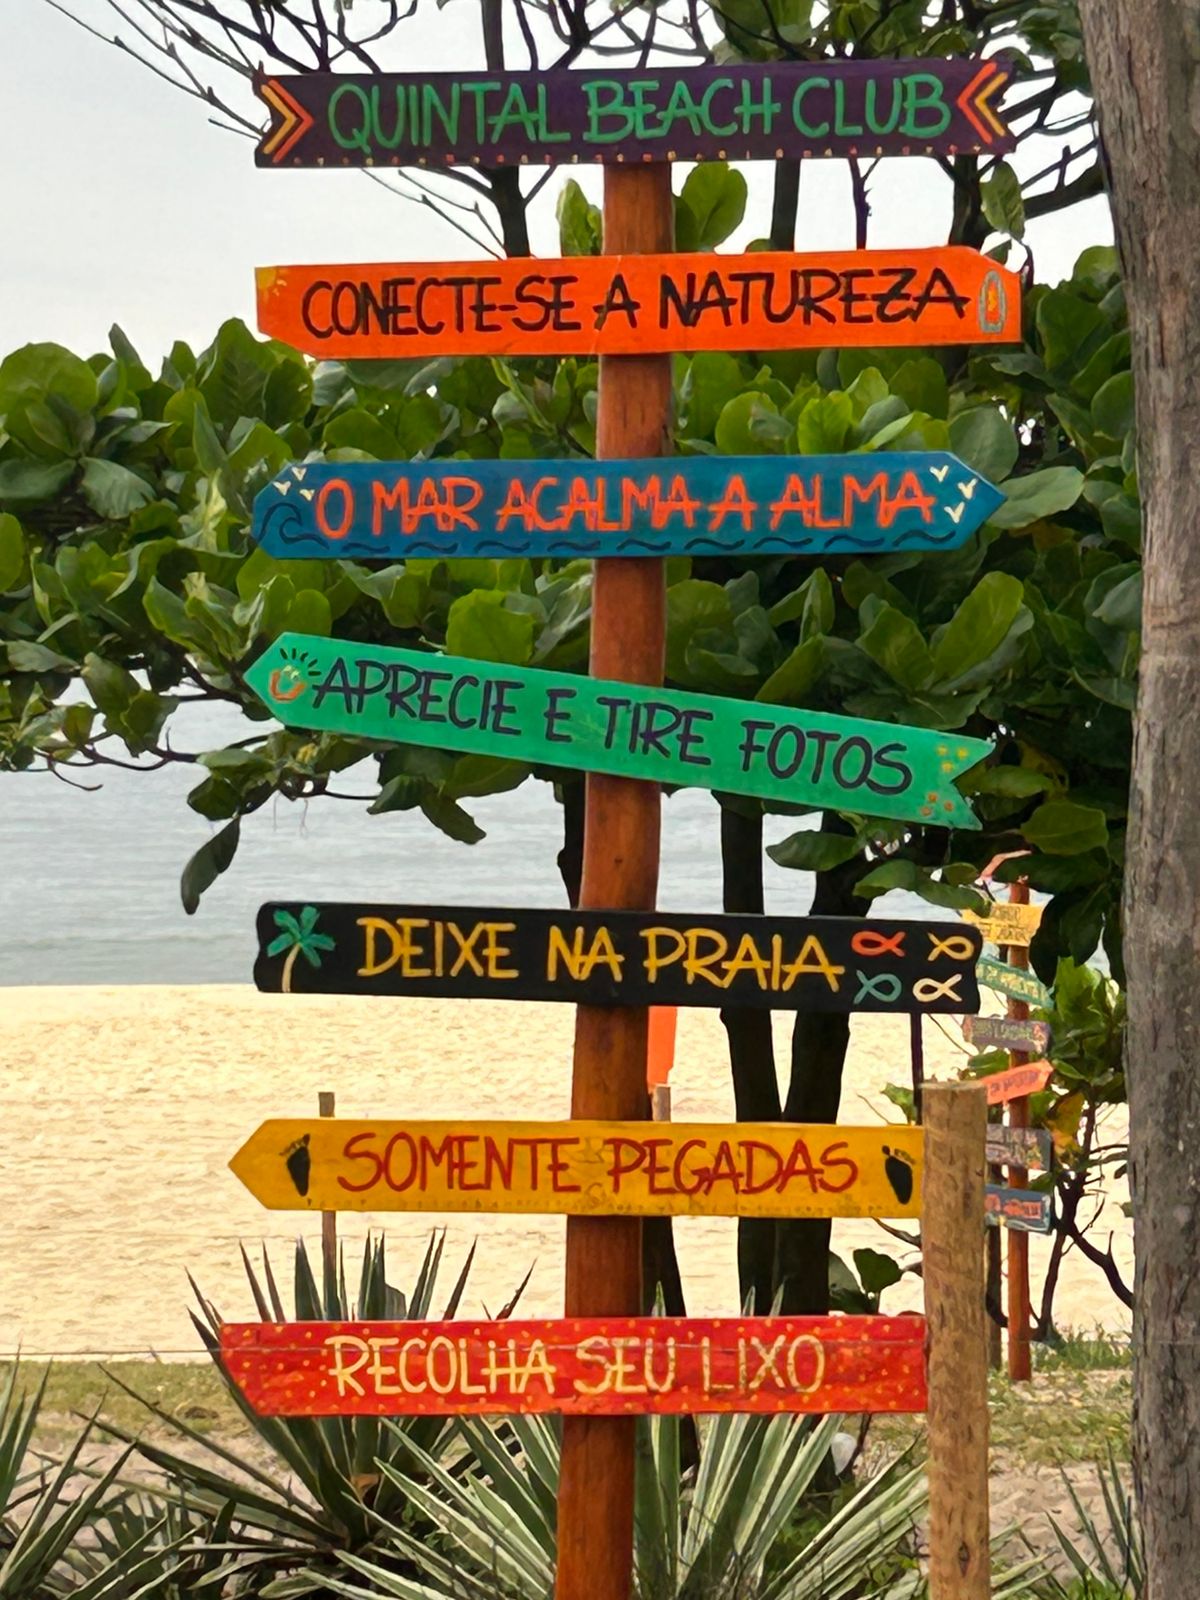 QUINTAL BEACH CLUB
CONECTE-SE A NATUREZA
O MAR ACALMA A ALMA
APRECIE E TIRE FOTOS
DEIXE NA PRAIA
SOMENTE PEGADAS
RECOLHA SEU LIXO